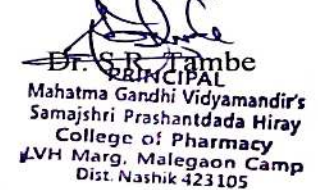 Dr. S.R. Tambe
PRINCIPAL
Mahatma Gandhi Vidyamandir's
Samajshri Prashantdada Hiray
College of Pharmacy
LVH Marg, Malegaon Camp
Dist. Nashik 423105